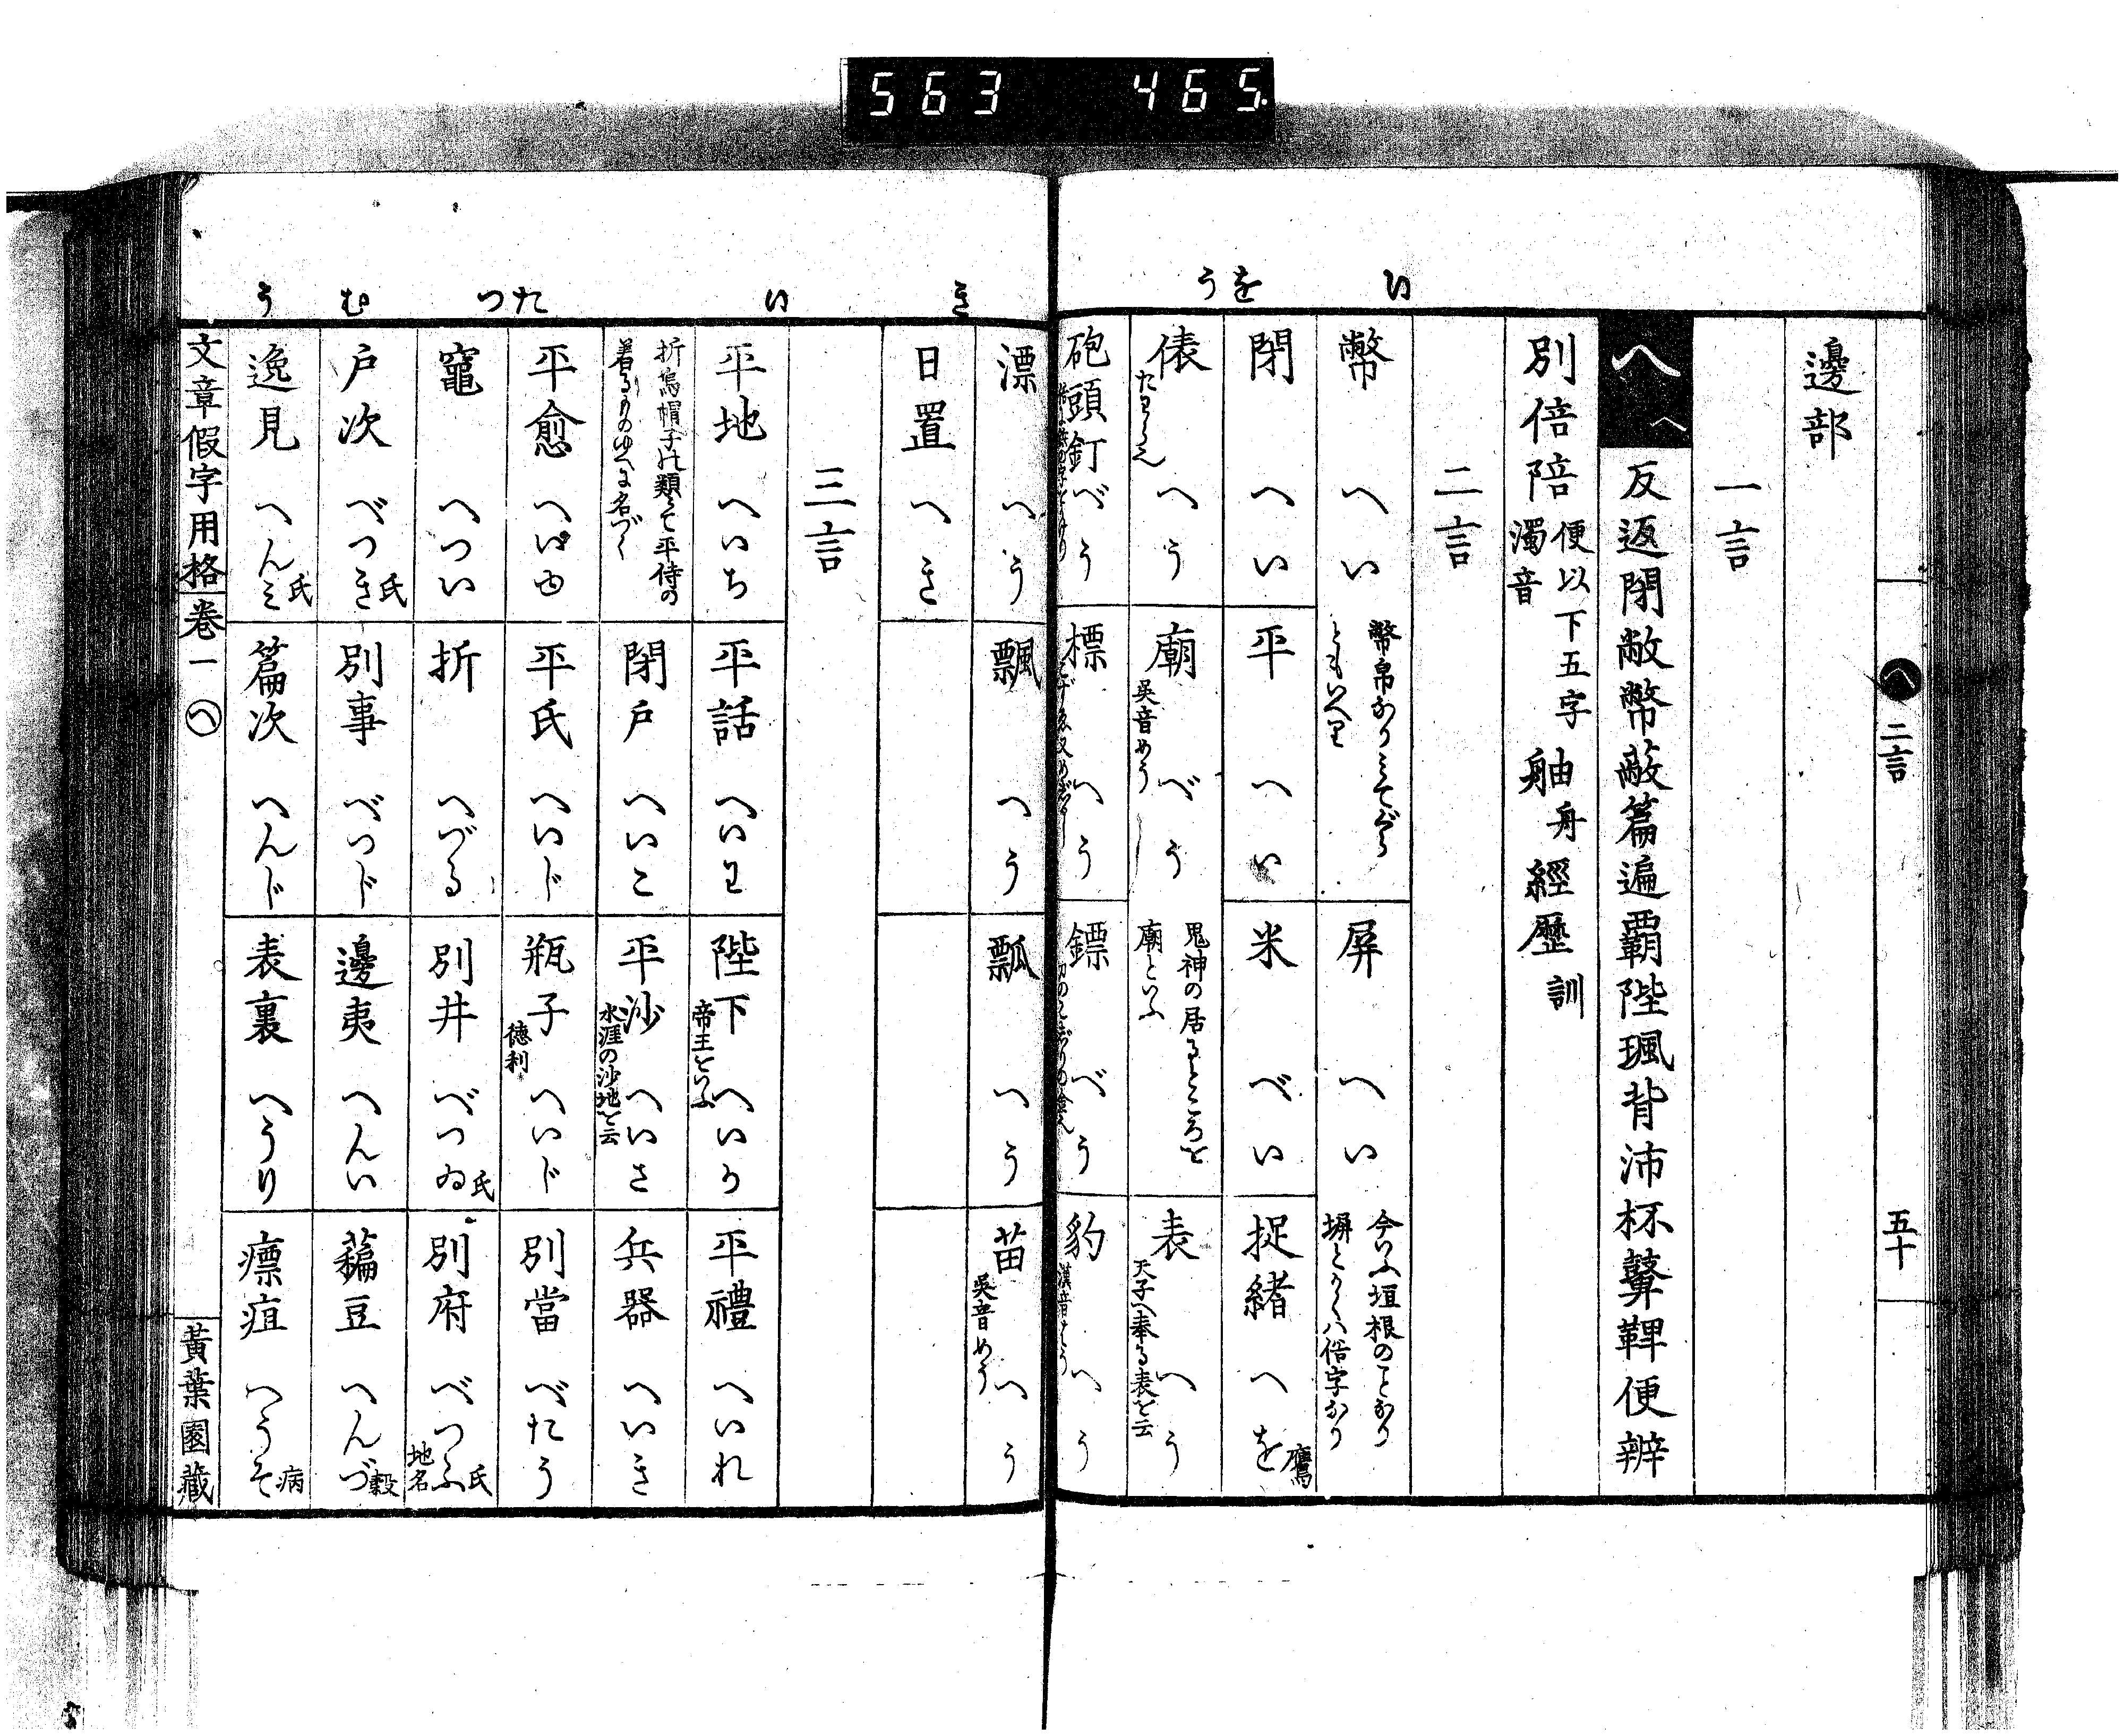 563 465
へ 二言 五十
邊部
一言
へ へ 反返閉敝幣蔽篇遍覇陛珮背沛杯鼙鞞便辨
別倍陪 便以下五字濁音 舳舟 經歷訓
二言
い
幣 へい 幣帛なり
屏 へい 今いふ垣根のことなり塀とかくハ俗字なり
を
閉 へい
平 へい
米 べい
捉緒 へを 鷹
う
俵 へう
廟 べう 吳音めう 鬼神の居るところを廟といふ
表 へう 天子へ奉る表を云
砲頭釘 べう
標 へう
鏢 べう
豹 へう
漂 へう
飄 へう
瓢 へう
苗 へう 吳音めう
き
日置 へき
三言
い
平地 へいち
平話 へいわ
陛下 へいか 帝王をいふ
平禮 へいれ
折烏帽子の類にて平侍の着るものゆへに名づく
閉戸 へいこ
平沙 へいさ 水涯の沙地を云
兵器 へいき
平愈 へいゆ
平氏 へいじ
瓶子 へいじ 德利
た
別當 べたう
つ
竈 へつい
折 へづる
別井 べつゐ 氏
別府 べつふ 氏 地名
戸次 べつき 氏
別事 べつじ
む
邊夷 へんい
藊豆 へんづ 穀
逸見 へんミ 氏
篇次 へんじ
う
表裏 へうり
瘭疽 へうそ 病
文章假字用格 卷一 へ 黃葉園藏